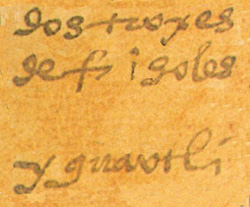 dos troxes
de frisoles
y guautli